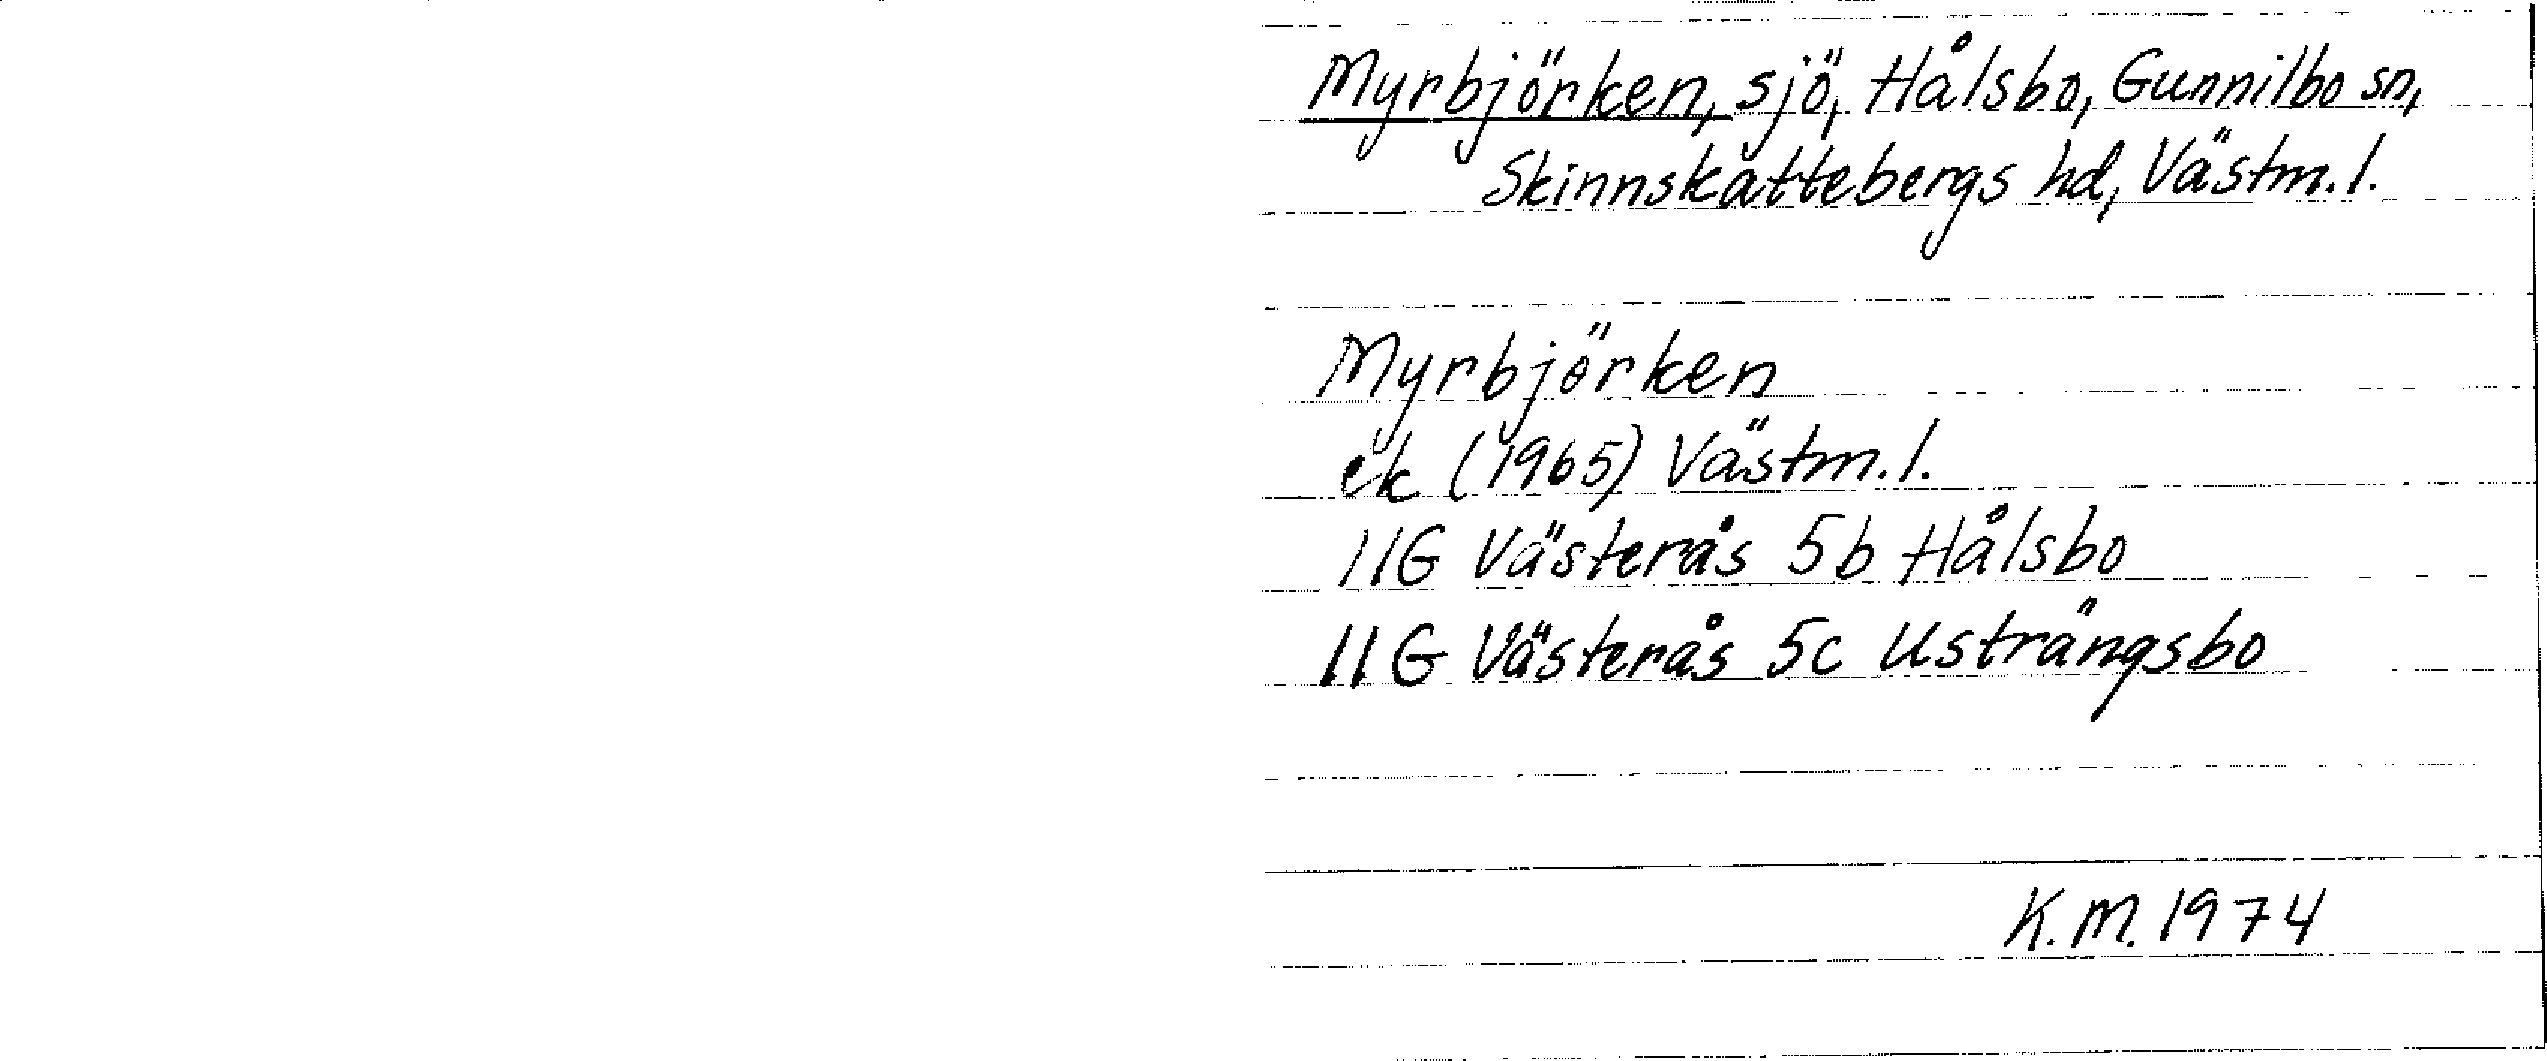 Myrbjörken, sjö, Hålsbo, Gunnilbo sn,
Skinnskattebergs hd, Västm. l.
Myrbjörken
ek (1965) Västm. l.
11G Västerås 5b Hålsbo
11G Västerås 5c Usträngsbo
K.M. 1974